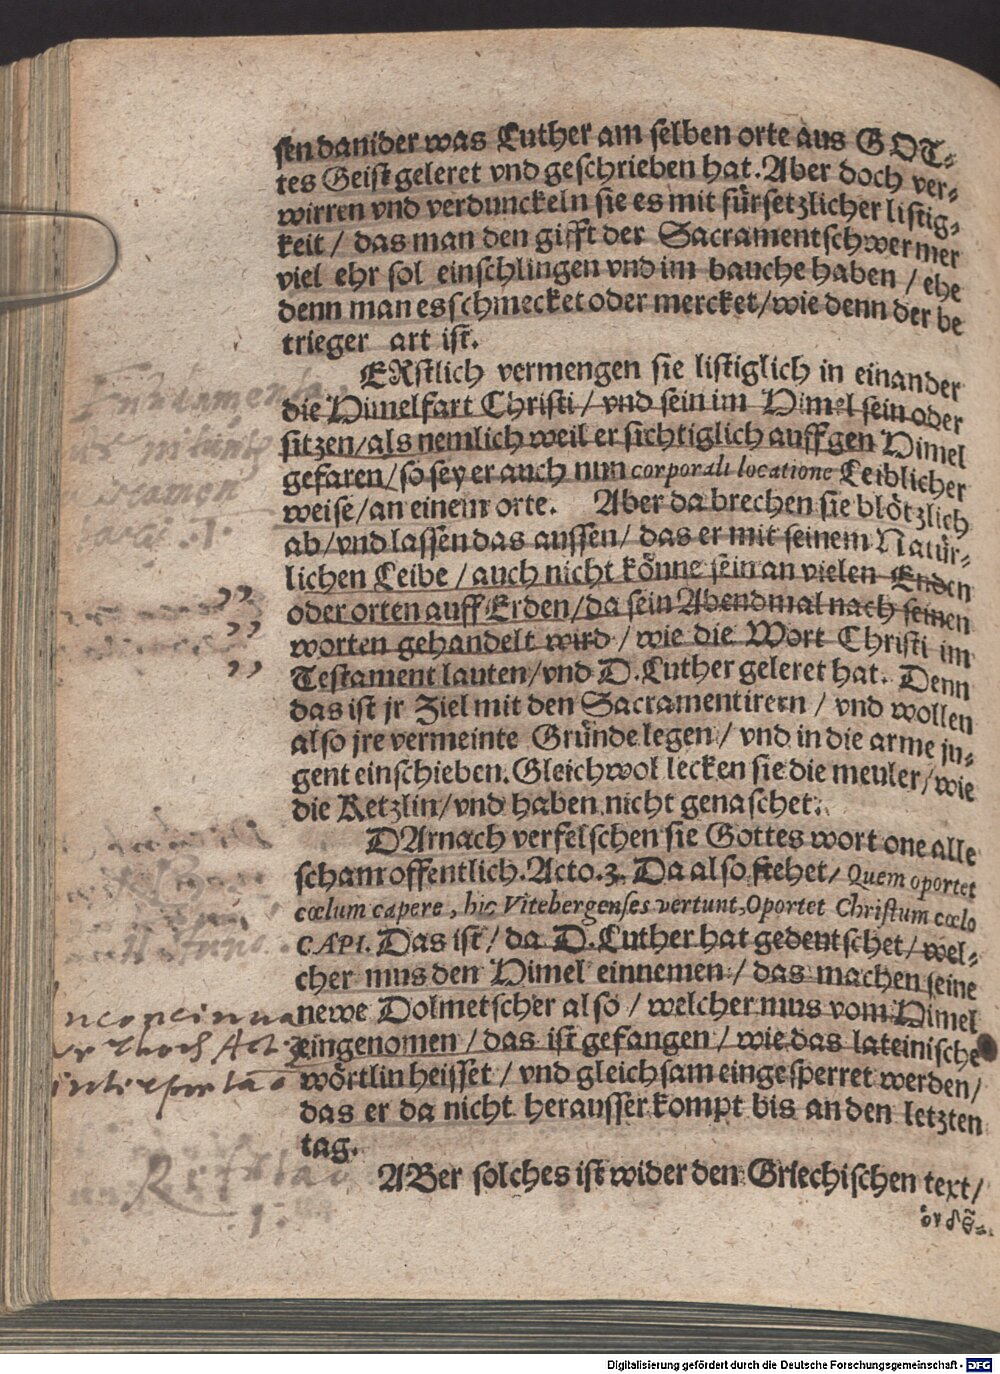 sen danider was Luther am selben orte aus GOT-
tes Geist geleret vnd geschrieben hat. Aber doch ver-
wirren vnd verdunckeln sie es mit fürsetzlicher listig-
keit / das man den gifft der Sacramentschwermer
viel ehr sol einschlingen vnd im bauche haben / ehe
denn man es schmecket oder mercket / wie denn der be
trieger art ist.
ERstlich vermengen sie listiglich in einander
die Himelfart Christi / vnd sein im Himel sein oder
sitzen / als nemlich weil er sichtiglich auff gen Himel
gefaren / so sey er auch nun corporali locatione Leiblicher
weise / an einem orte. Aber da brechen sie blötzlich
ab / vnd lassen das aussen / das er mit seinem Natür-
lichen Leibe / auch nicht könne sein an vielen Enden
oder orten auff Erden / da sein Abendmal nach seinen
worten gehandelt wird / wie die Wort Christi im
Testament lauten / vnd D. Luther geleret hat. Denn
das ist jr Ziel mit den Sacramentirern / vnd wollen
also jre vermeinte Gründe legen / vnd in die arme ju-
gent einschieben. Gleichwol lecken sie die meuler / wie
die Ketzlin / vnd haben nicht genaschet.
DArnach verfelschen sie Gottes wort one alle
scham offentlich. Acto. 3. Da also stehet / Quem oportet
cœlum capere, hic Vitebergenses vertunt, Oportet Christum cœlo
CAPI. Das ist / da D. Luther hat gedeutschet / wel-
cher mus den Himel einnemen / das machen seine
newe Dolmetscher also / welcher mus vom Himel
eingenomen / das ist gefangen / wie das lateinische
wörtlin heisset / vnd gleichsam eingesperret werden /
das er da nicht herausser kompt bis an den letzten
tag.
ABer solches ist wider den Griechischen text /
Digitalisierung gefördert durch die Deutsche Forschungsgemeinschaft - DFG